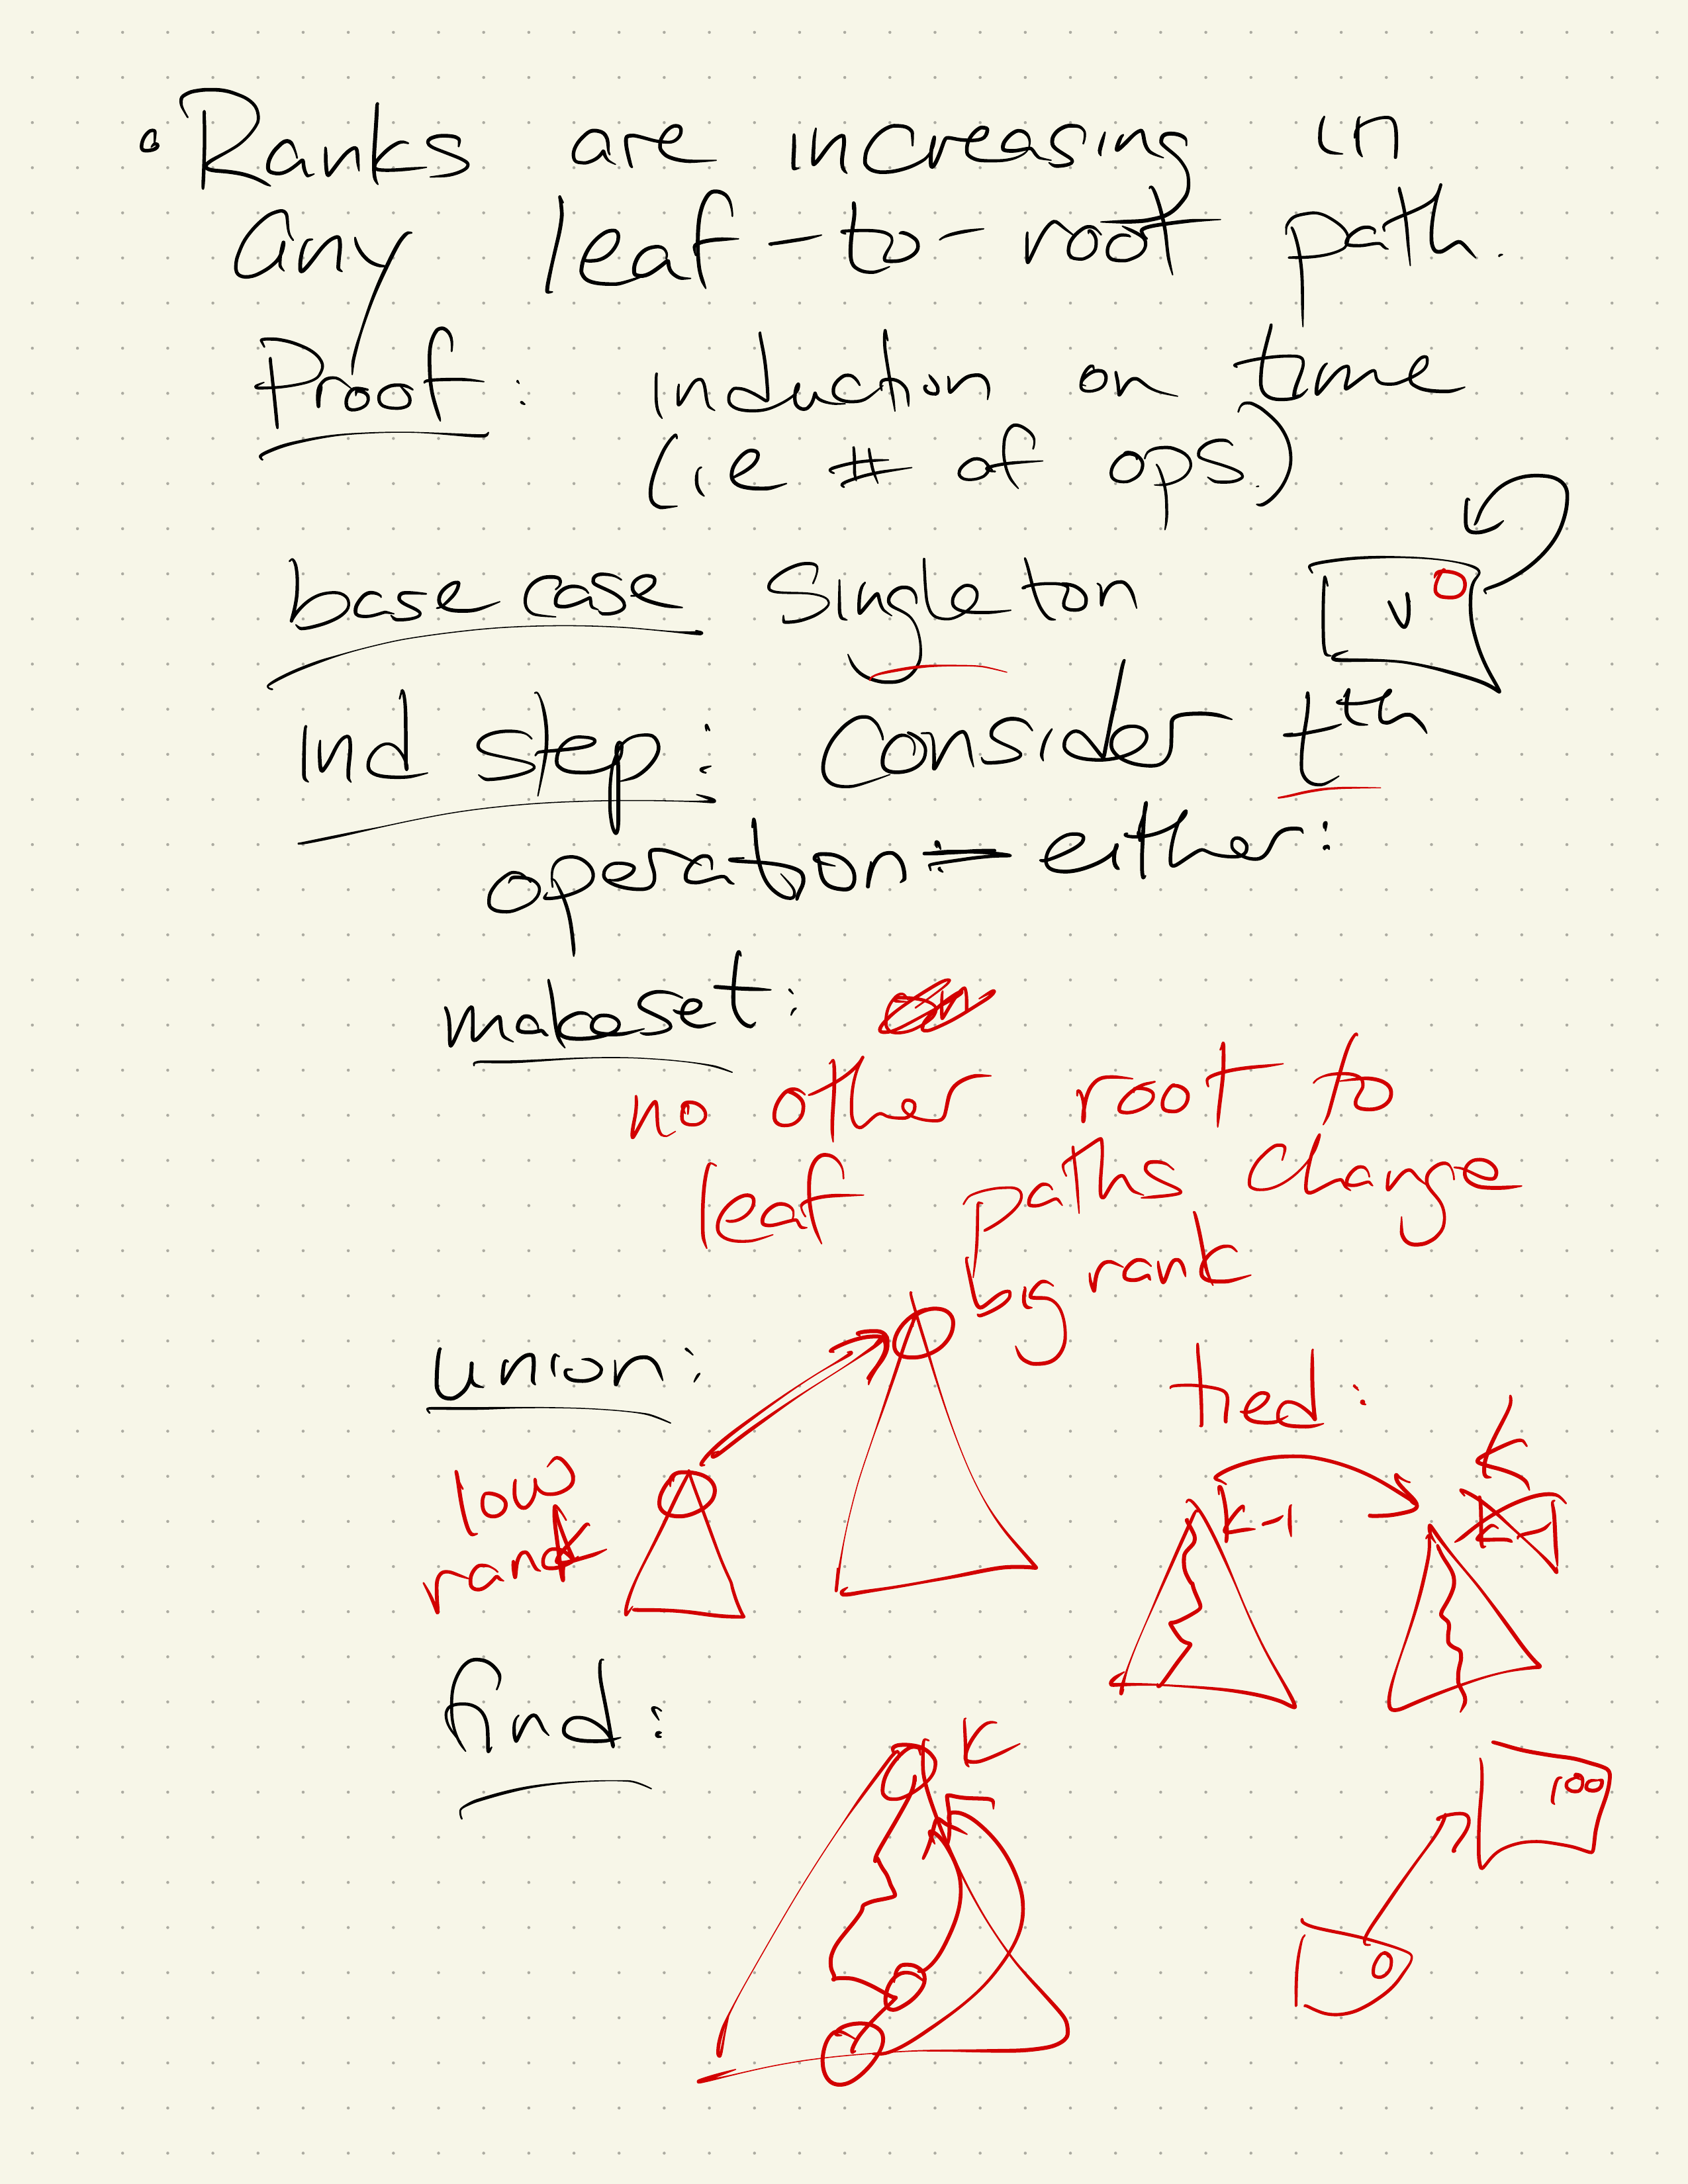 • Ranks are increasing in
any leaf-to-root path.
Proof: induction on time
(ie # of ops.)
base case Singleton
v 0
ind step: Consider tth
operation = either:
makeset:
no other root to
leaf paths change
big rank
union:
tied:
low
rank
k-1
k
k-1
find:
k
100
0